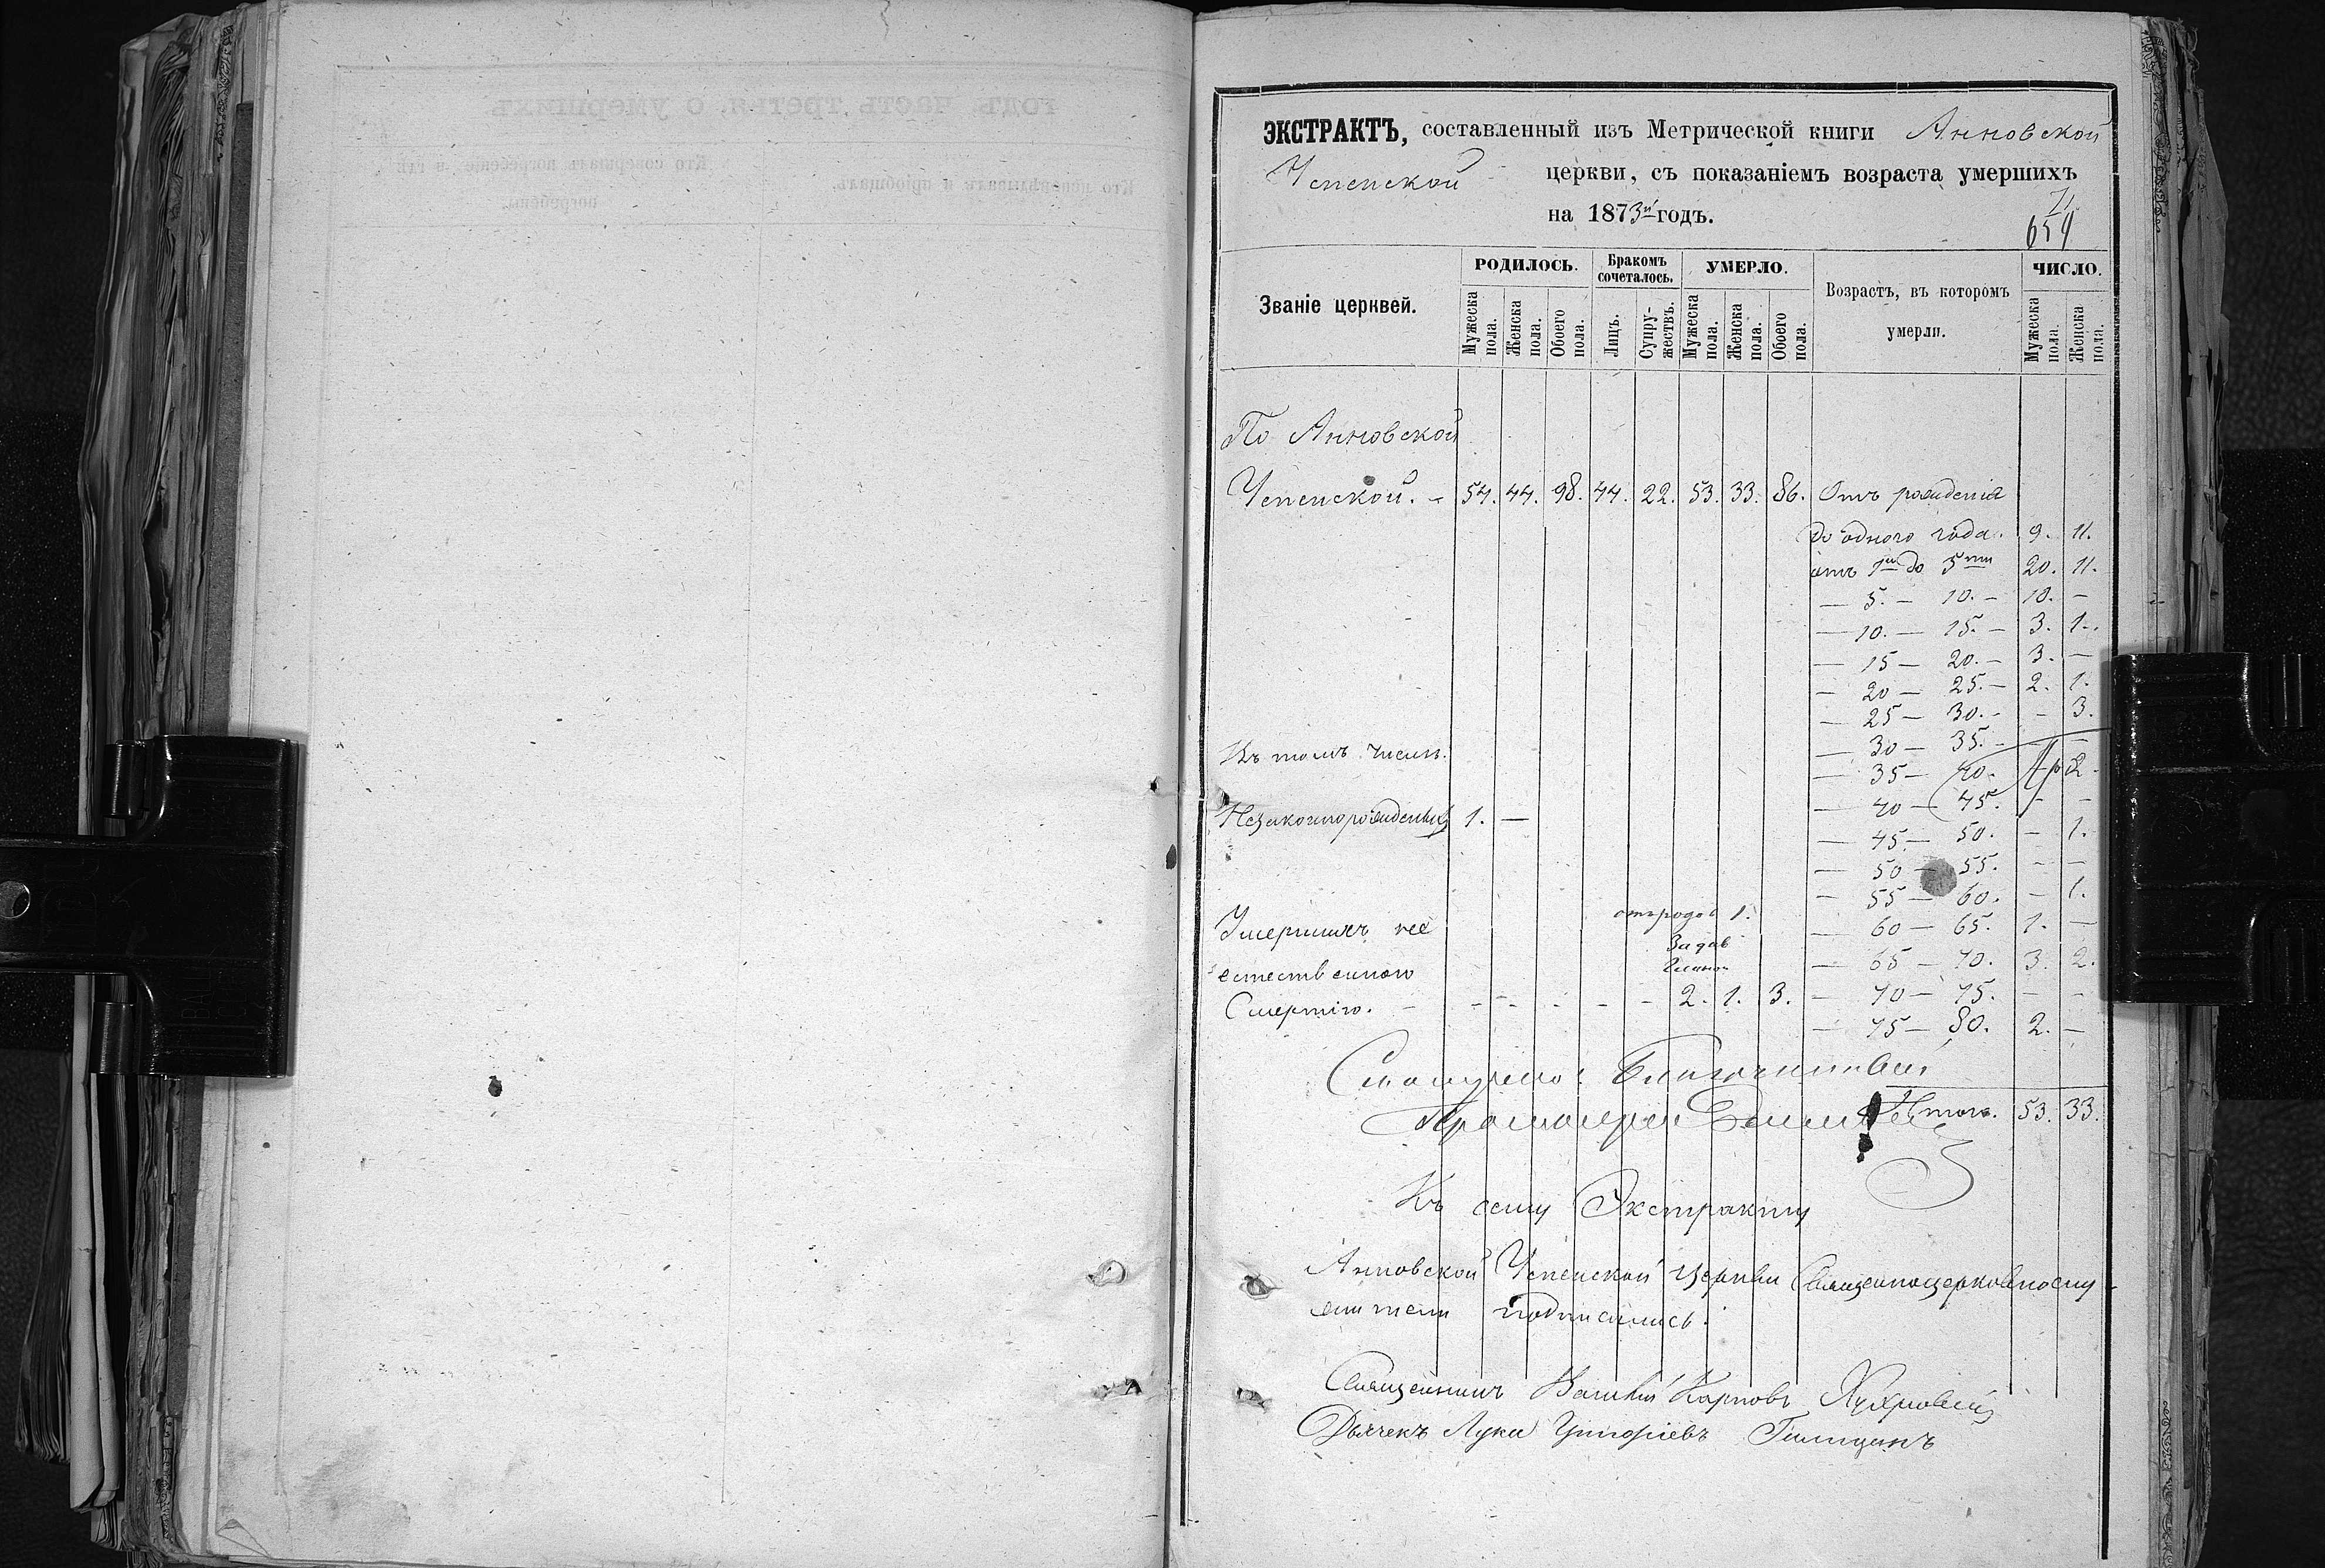 ЭКСТРАКТЪ, составленный изъ Метрической книги Анновской
Успенской церкви, съ показаніемъ возраста умершихъ
на 1873й годъ.
654
Званіе церквей.
РОДИЛОСЬ.
Бракомъ сочеталось.
УМЕРЛО.
Возрастъ, въ которомъ умерли.
ЧИСЛО.
Мужеска пола. Женска пола. Обоего пола. Лицъ. Супружествъ. Мужеска пола. Женска пола. Обоего пола. Мужеска пола. Женска пола.
По Анновской
Успенской. - 54. 44. 98. 44. 22. 53. 33. 86. Отъ рожденія
до одного года. 9. 11.
отъ 1го до 5ти 20. 11.
— 5. — 10. — 10. —
— 10. — 15. — 3. 1.
— 15 — 20. — 3. —
— 20 — 25. — 2. 1.
— 25 — 30. - - 3.
— 30 — 35. -
Въ томъ числѣ.
— 35 — 40. 2
— 40 — 45. - -
Незаконнорожденныхъ 1. —
— 45. — 50. — 1.
— 50 — 55. - —
— 55 — 60. — 1.
отъ родов 1.
Умершихъ не
— 60 — 65. 1. —
Задав
глиной
естественною
— 65 — 70. 3. 2.
Смертію. - - - - - - 2. 1. 3. — 70 — 75. - -
— 75 — 80. 2. —
Смотрено: Благочинный
Протоіерей
Итого. 53. 33.
Къ сему Экстракту
Анновской Успенской Церкви Священноцерковнослу-
жители подписались.
Священникъ Василій Карповъ
Дьячекъ Лука Григоріевъ